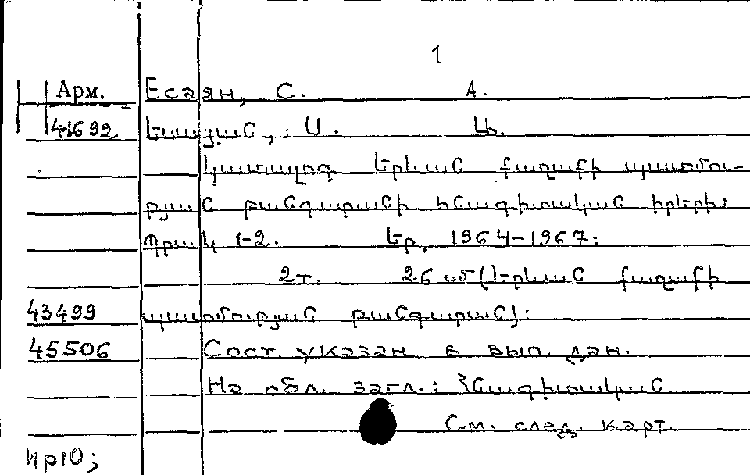 1
Арм. Есаян, С. А.
41699 Եսայան, Ս. Ա.
Կատալոգ Երևան քաղաքի պատմու-
թյան թանգարանի հնագիտական իրերի:
Պրակ 1-2. Եր, 1964-1967:
2т. 26 սմ (Երևան քաղաքի
43499 պատմության թանգարան):
45506 Сост. указан в вып. дан.
На обл. загл.: Հնագիտական
См. след. карт.